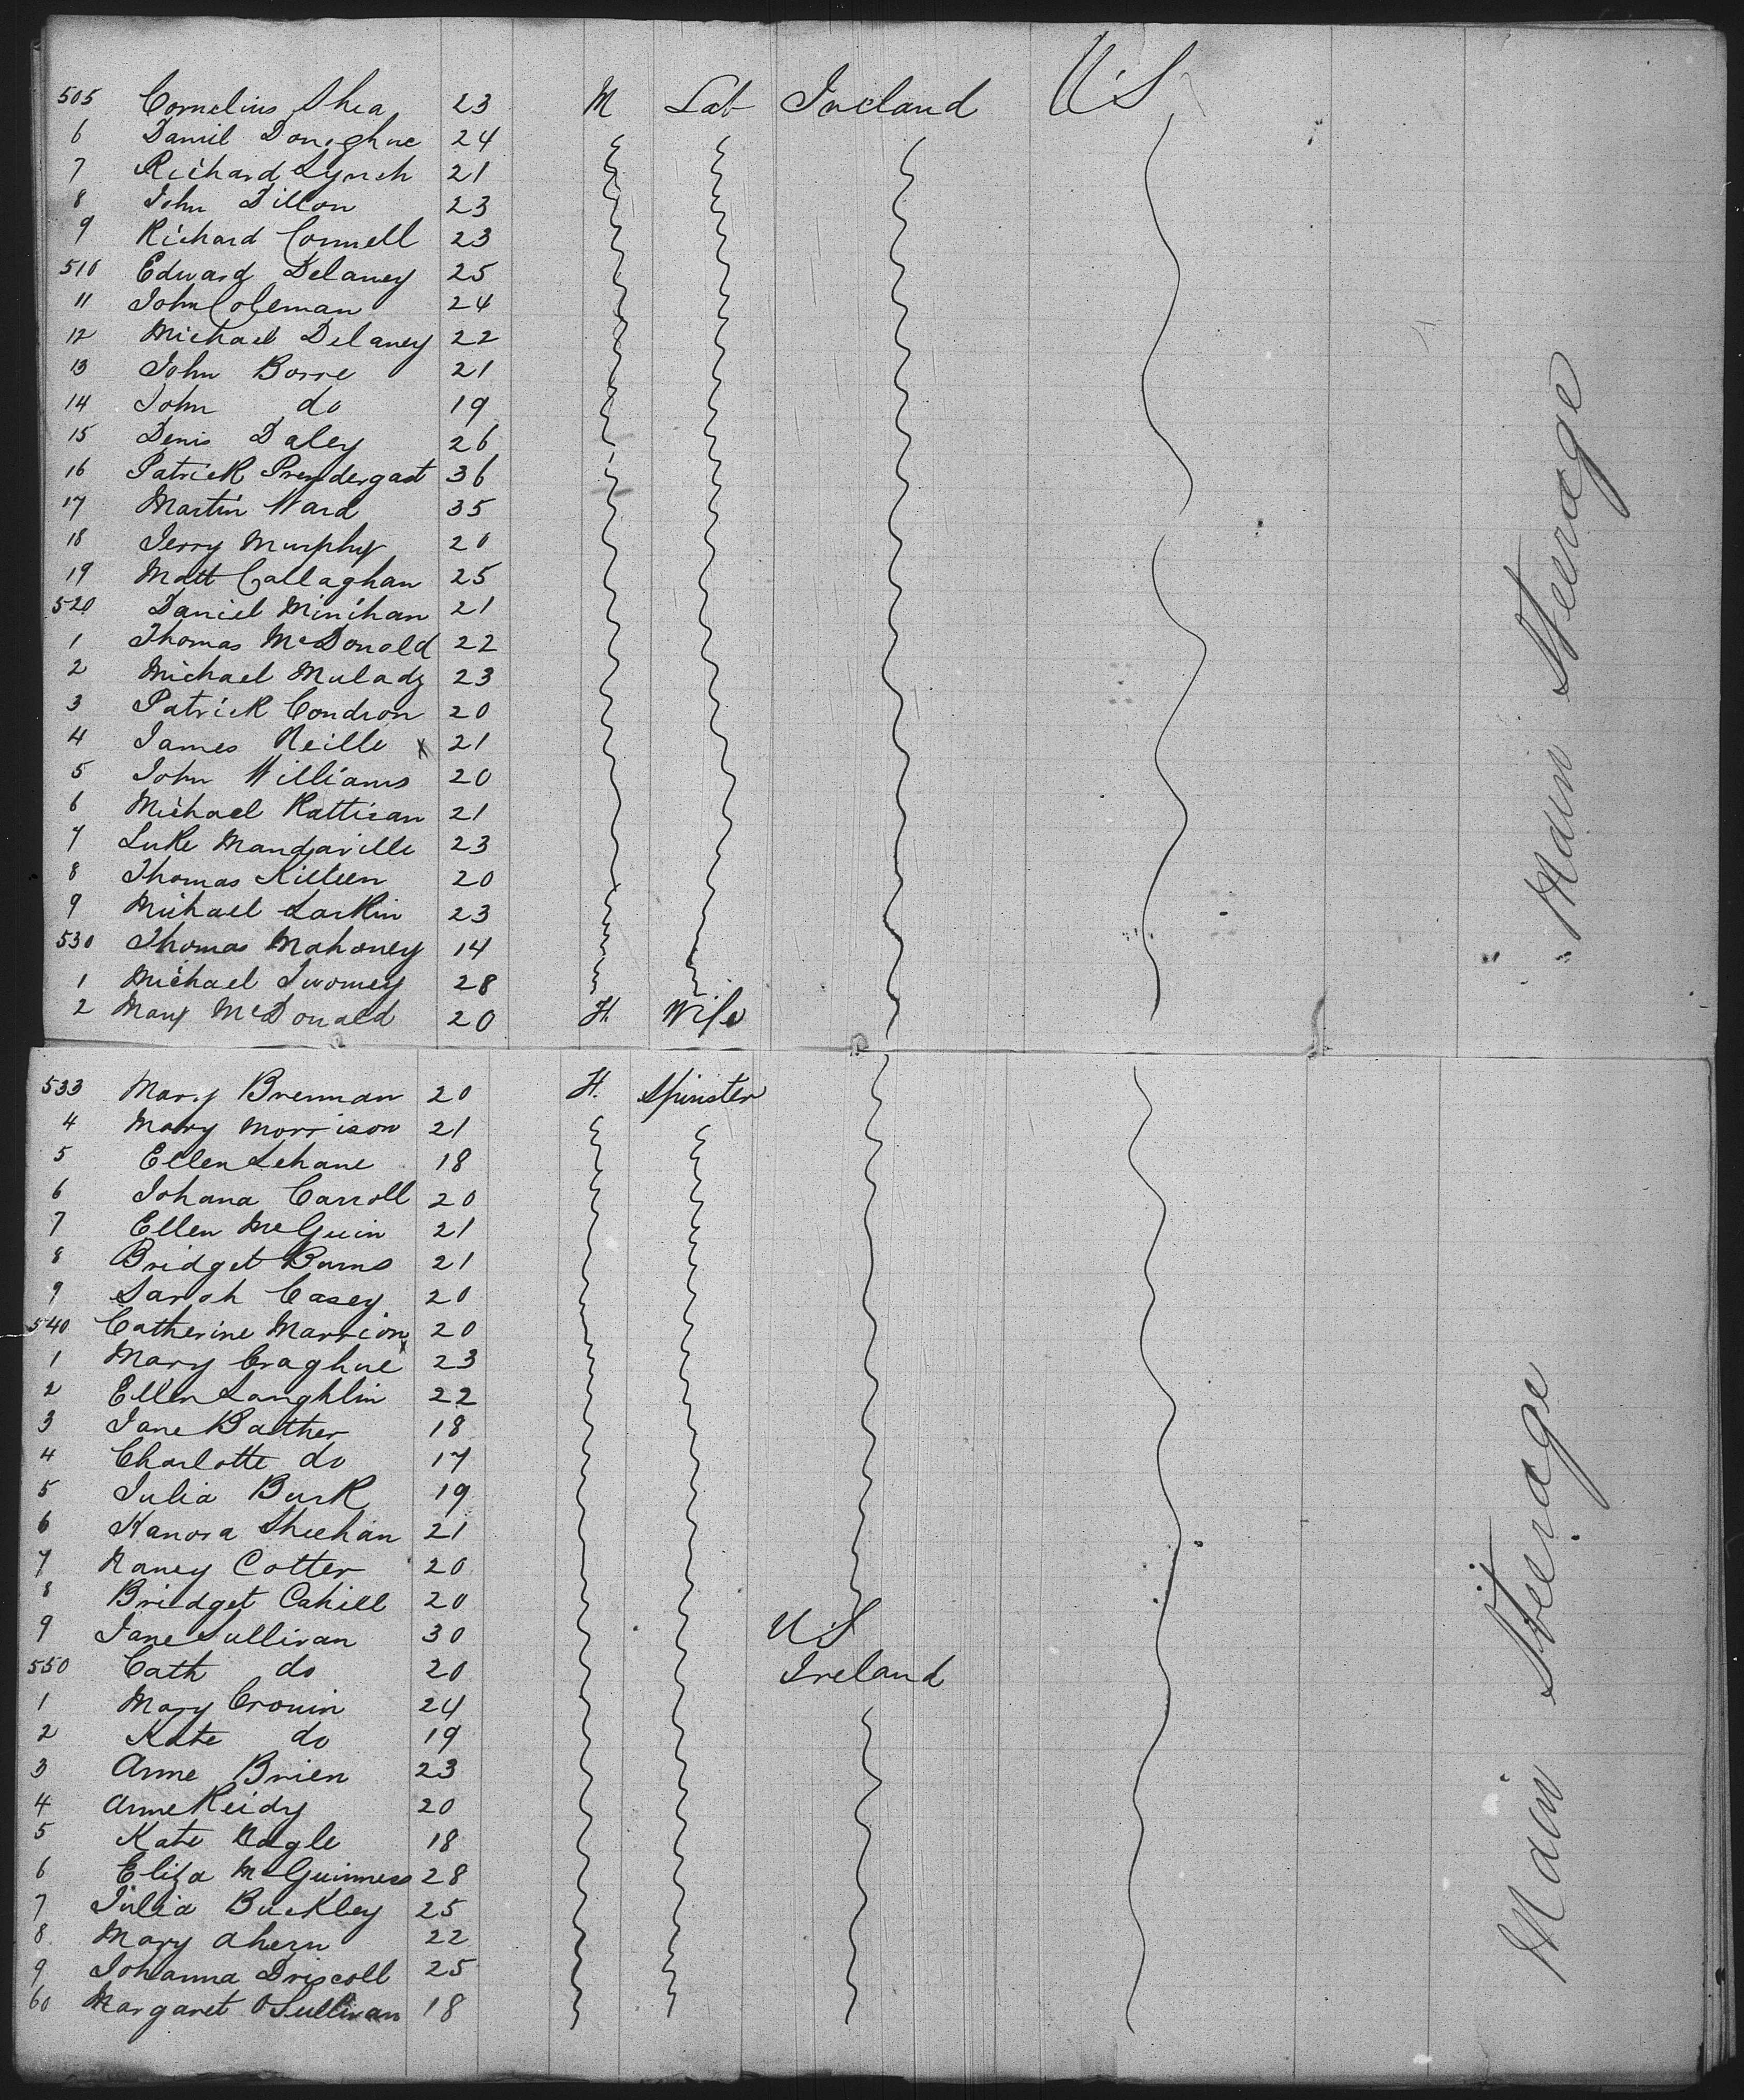 505 Cornelius Shea 23 M Lab Ireland U.S
6 Daniel Donoghue 24
7 Richard Lynch 21
8 John Dillon 23
9 Richard Connell 23
510 Edward Delaney 25
11 John Coleman 24
12 Michael Delaney 22
13 John Borre 21
14 John do 19
15 Denis Daley 26
16 Patrick Prendergast 36
17 Martin Ward 35
18 Jerry Murphy 20
19 Matt Callaghan 25
520 Daniel Minihan 21
1 Thomas McDonald 22
2 Michael Mulady 23
3 Patrick Condron 20
4 James Neille x 21
5 John Williams 20
6 Michael Rattican 21
7 Luke Mandaville 23
8 Thomas Killeen 20
9 Michael Larkin 23
530 Thomas Mahoney 14
1 Michael Twomey 28
2 Mary McDonald 20 H. Wife
Main Steerage
533 Mary Brennan 20 H. Spinster
4 Mary Morrison 21
5 Ellen Lehane 18
6 Johana Carroll 20
7 Ellen McGuin 21
8 Bridget Burns 21
9 Sarah Casey 20
540 Catherine Marrion 20
1 Mary Craghue x 23
2 Ellen Laughlin 22
3 Jane Baither 18
4 Charlotte do 17
5 Julia Burk 19
6 Hanora Sheehan 21
7 Nancy Cotter 20
8 Bridget Cahill 20
9 Jane Sullivan 30 U S
550 Cath do 20 Ireland
1 Mary Cronin 24
2 Kate do 19
3 Anne Brien 23
4 Anne Reidy 20
5 Kate Nagle 18
6 Eliza McGuinness 28
7 Julia Buckley 25
8 Mary Ahern 22
9 Johanna Driscoll 25
60 Margaret O'Sullivan 18
Main Steerage